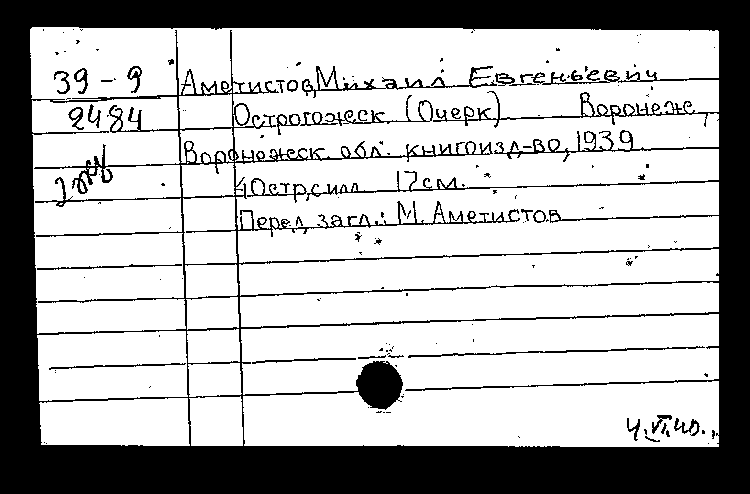 39-9 Аметистов, Михаил Евгеньевич
2484 Острогожск (Очерк) Воронеж,
Воронежск. обл. книгоизд-во, 1939
40стр, силл 17см.
Перед загл.: М. Аметистов
4.VI.40.